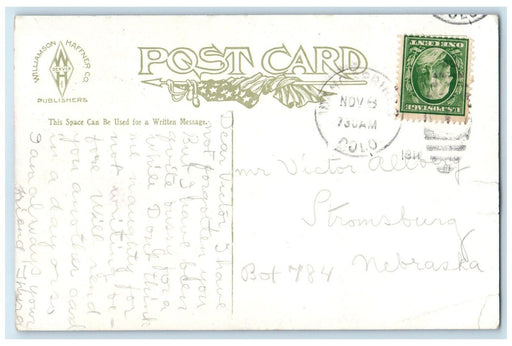 WILLIAMSON HAFFNER CO.
DENVER
PUBLISHERS
POST CARD
This Space Can Be Used for a Written Message.
COLO
NOV 3
730AM
COLO.
1911
U.S. POSTAGE
ONE CENT
Dear Victor I have
not forgotten you
But I have been
quite busy for a
while Don't think
me naughty for
not writing be-
fore will send
you another card
in a day or so
I am always your
friend
mr Victor
Stromsburg
Box 784 Nebraska